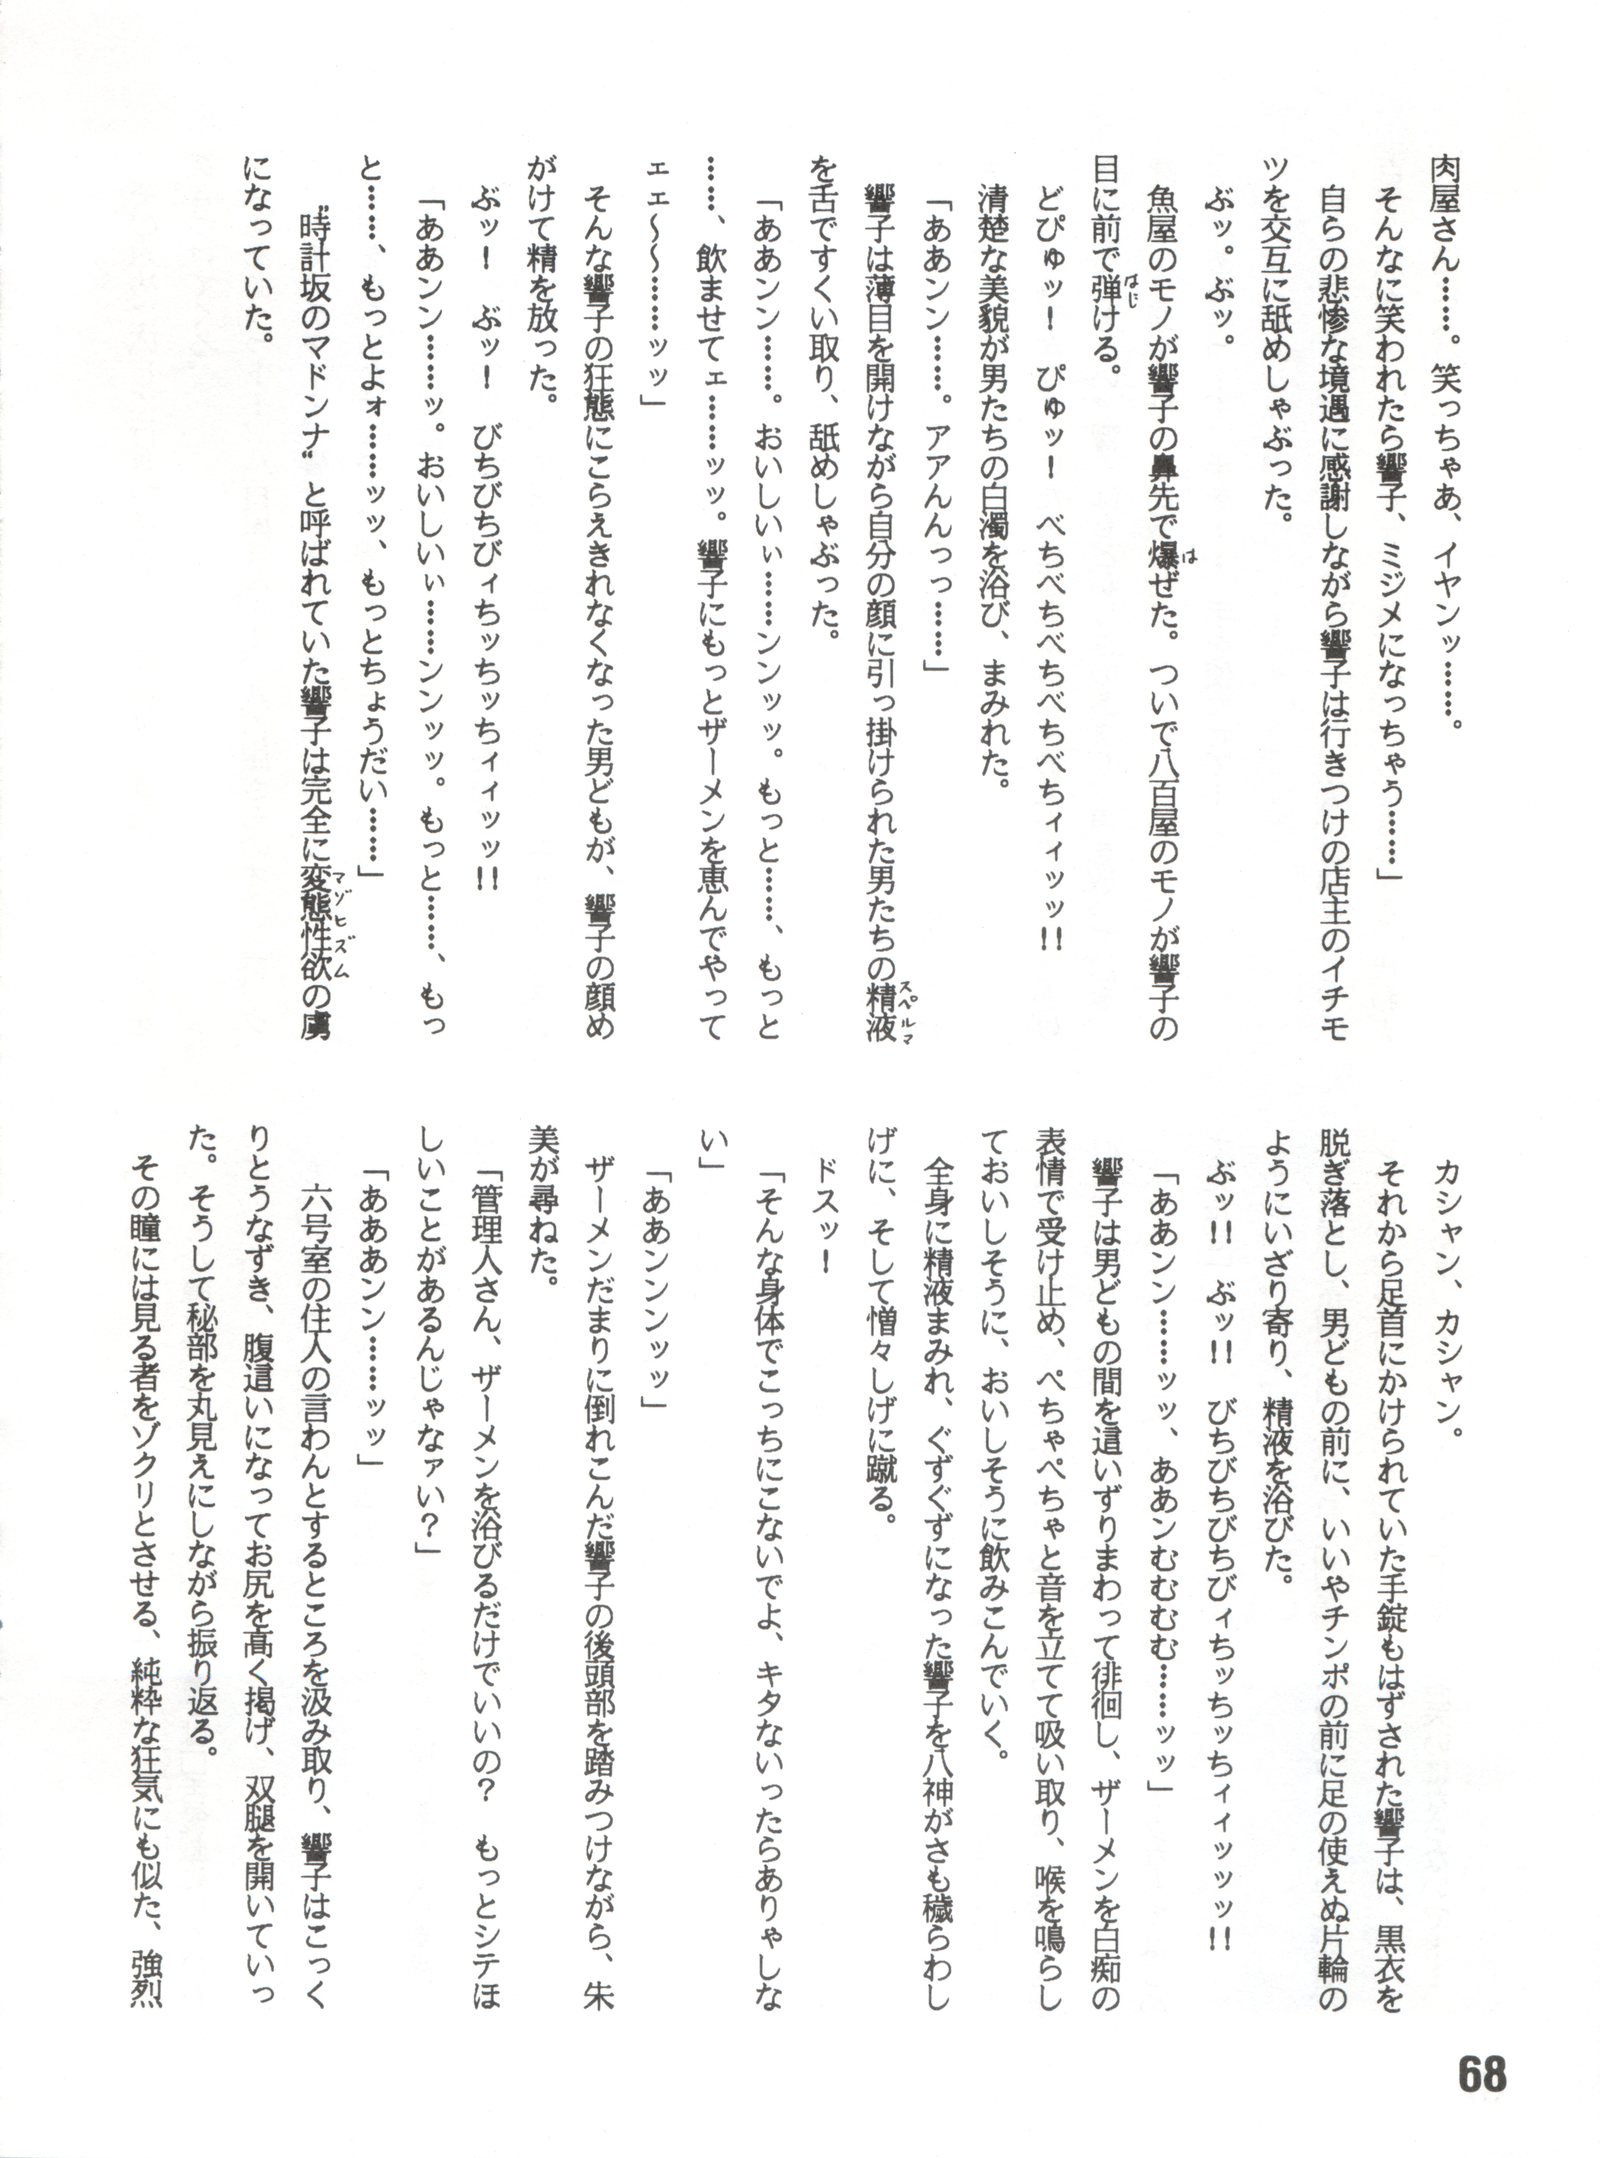 肉屋さん……。笑っちゃあ、イヤンッ……。
そんなに笑われたら響子、ミジメになっちゃう……」
自らの悲惨な境遇に感謝しながら響子は行きつけの店主のイチモ
ツを交互に舐めしゃぶった。
ぶッ。ぶッ。
魚屋のモノが響子の鼻先で爆ぜた。ついで八百屋のモノが響子の
目に前で弾ける。
どぴゅッ！　ぴゅッ！　べちべちべちべちべちィィッッ!!
清楚な美貌が男たちの白濁を浴び、まみれた。
「ああンン……。アアんんっっ……」
響子は薄目を開けながら自分の顔に引っ掛けられた男たちの精液
を舌ですくい取り、舐めしゃぶった。
「ああンン……。おいしいぃ……ンンッッ。もっと……、もっと
……、飲ませてェ……ッッ。響子にもっとザーメンを恵んでやって
ェェ〜〜……ッッ」
そんな響子の狂態にこらえきれなくなった男どもが、響子の顔め
がけて精を放った。
ぶッ！　ぶッ！　びちびちびィちッちッちィィッッ!!
「ああンン……ッ。おいしいぃ……ンンッッ。もっと……、もっ
と……、もっとよォ……ッッ、もっとちょうだい……」
〝時計坂のマドンナ〟と呼ばれていた響子は完全に変態性欲の虜
になっていた。
カシャン、カシャン。
それから足首にかけられていた手錠もはずされた響子は、黒衣を
脱ぎ落とし、男どもの前に、いいやチンポの前に足の使えぬ片輪の
ようにいざり寄り、精液を浴びた。
ぶッ!!　ぶッ!!　びちびちびちびィちッちッちィィッッッ!!
「ああンン……ッッ、ああンむむむむ……ッッ」
響子は男どもの間を這いずりまわって徘徊し、ザーメンを白痴の
表情で受け止め、ぺちゃぺちゃと音を立てて吸い取り、喉を鳴らし
ておいしそうに、おいしそうに飲みこんでいく。
全身に精液まみれ、ぐずぐずになった響子を八神がさも穢らわし
げに、そして憎々しげに蹴る。
ドスッ！
「そんな身体でこっちにこないでよ、キタないったらありゃしな
い」
「ああンンンッッ」
ザーメンだまりに倒れこんだ響子の後頭部を踏みつけながら、朱
美が尋ねた。
「管理人さん、ザーメンを浴びるだけでいいの？　もっとシテほ
しいことがあるんじゃなァい？」
「あああンン……ッッ」
六号室の住人の言わんとするところを汲み取り、響子はこっく
りとうなずき、腹這いになってお尻を高く掲げ、双腿を開いていっ
た。そうして秘部を丸見えにしながら振り返る。
その瞳には見る者をゾクリとさせる、純粋な狂気にも似た、強烈
68